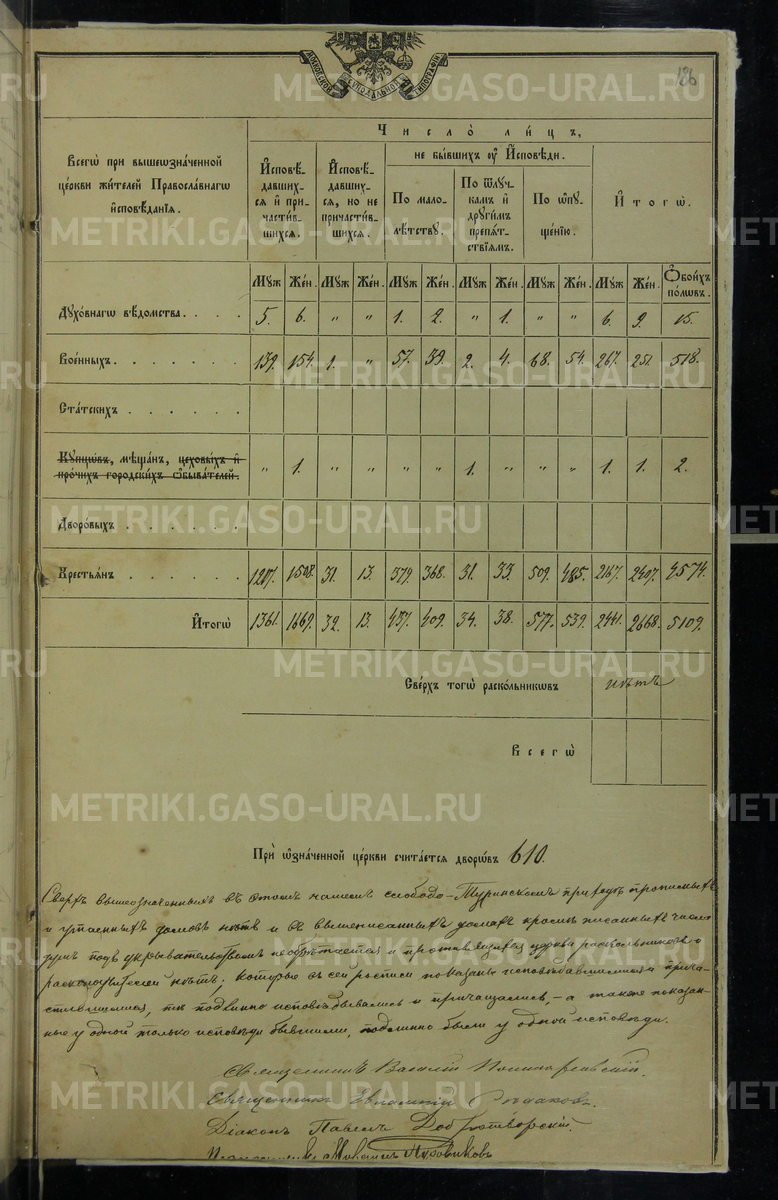 МОСКОВСКОЙ СѴНОДАЛЬНОЙ ТИПОГРАФІИ
126
Всегѡ при вышеѡзначенной церкви жителей Православнагѡ исповѣданія.
Число лицъ,
Исповѣдавшихся и причастившихся.
Исповѣдавшихся, но не причастившихся.
не бывшихъ ѹ Исповѣди.
По малолѣтству.
По ѿлучкамъ и другимъ препятствіямъ.
По ѡпущенію.
Итогѡ.
Муж Жен. Муж Жен. Муж Жен. Муж Жен. Муж Жен. Муж Жен. Ѻбоихъ половъ.
Духовнагѡ вѣдомства. . . . 5. 6. " " 1. 2. " 1. " " 6. 9. 15.
Военныхъ. . . . . . . 139. 154. 1. " 57. 39. 2. 4. 68. 54. 267. 251. 518.
Статскихъ . . . . . .
Купцѡвъ, мѣщанъ, цеховыхъ и прочихъ городскихъ ѡбывателей. " 1. " " " " 1. " " " 1. 1. 2.
Дворовыхъ . . . . . .
Крестьянъ . . . . . . 1217. 1508. 31. 13. 379. 368. 31. 33. 509. 485. 2167. 2407. 4574.
Итогѡ 1361. 1669. 32. 13. 437. 409. 34. 38. 577. 539. 2441. 2668. 5109.
Сверхъ тогѡ раскольникѡвъ нѣтъ
Всегѡ
При ѡзначенной церкви считается дворѡвъ 610.
Сверхъ вышеозначенныхъ въ этомъ нашемъ слободо-Туринскомъ приходѣ прописныхъ
и утаенныхъ домовъ нѣтъ и въ вышеписанныхъ домахъ кромѣ писанныхъ числа
душъ подъ укрывательствомъ не обрѣтается и противящихся церкви раскольниковъ и
нѣтъ; которые въ сей росписи показаны исповѣдавшимися и прича-
стившимися, тѣ подлинно исповѣдывались и причащались, – а также показан-
ные у одной только исповѣди бывшими, подлинно были у одной исповѣди.
Священникъ Василій
Священникъ Евлампій
Діаконъ Павелъ Добротворскій.
METRIKI.GASO-URAL.RU